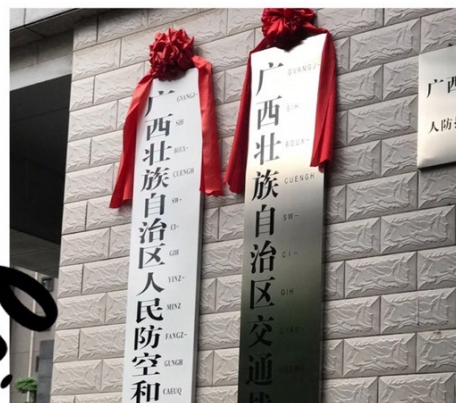 广西壮族自治区人民防空和
GVANGJ-
SIH
BOUX-
CUENGH
SW-
CI-
GIH
YINZ-
MINZ
FANGZ-
GUNGH
CAEUQ
广西壮族自治区交通战
GVANGJ-
SIH
BOUX-
CUENGH
SW-
CI-
GIH
广西
人防